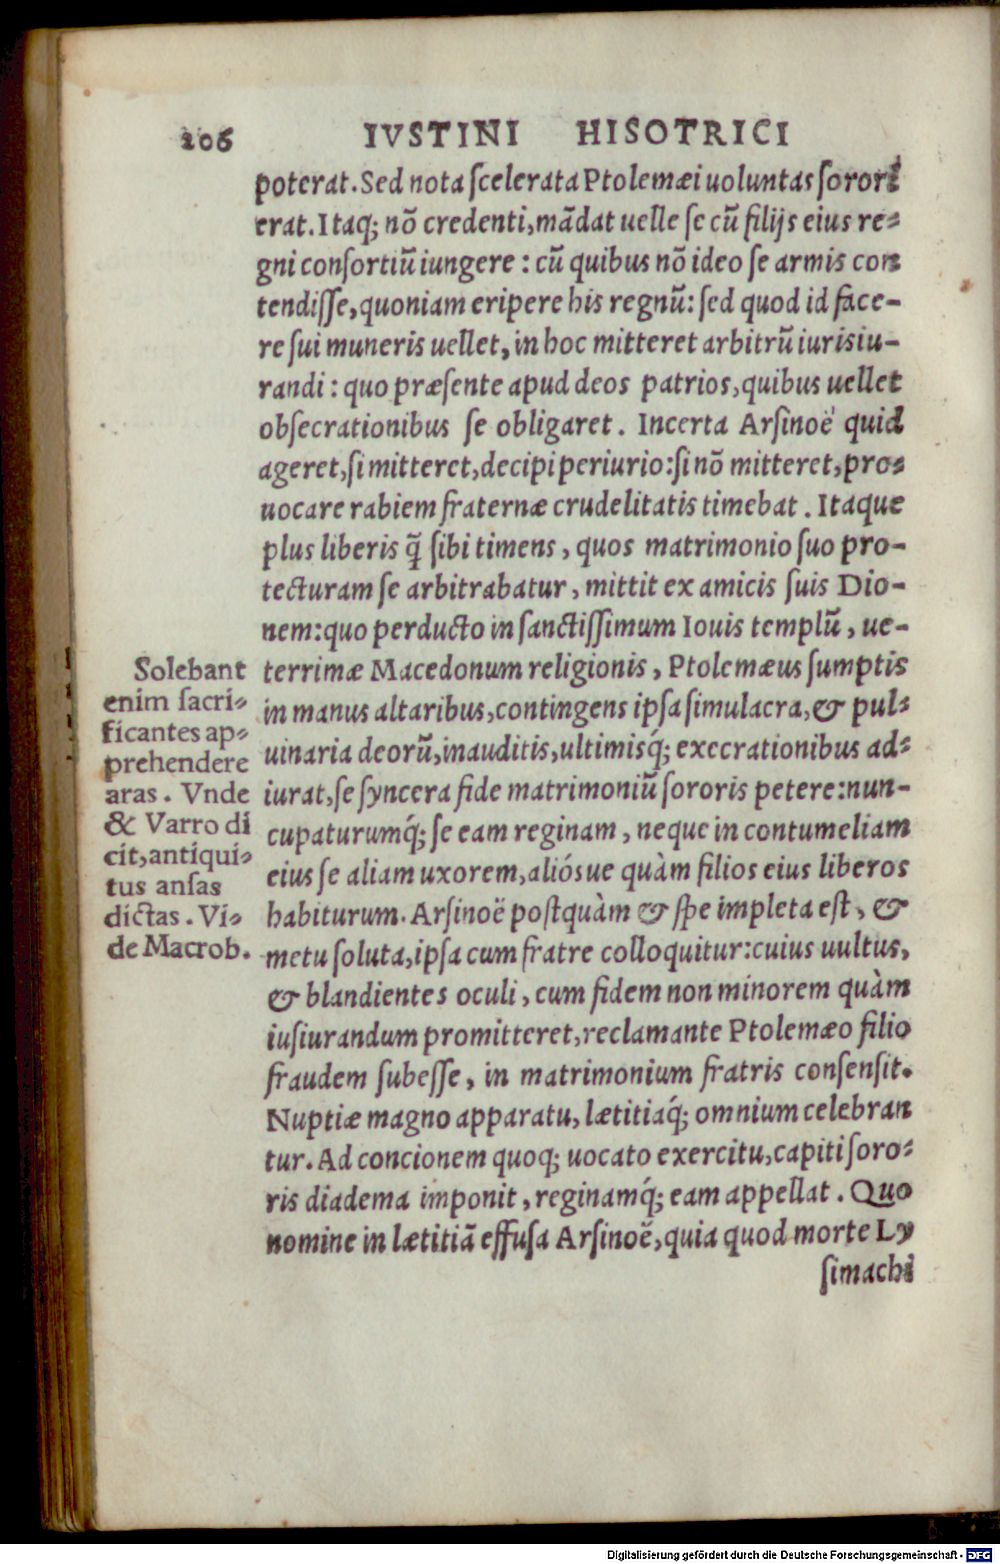 206 IVSTINI HISOTRICI
poterat. Sed nota ſcelerata Ptolemæi uoluntas ſorori
erat. Itaq; nõ credenti, mãdat uelle ſe cũ filijs eius re-
gni conſortiũ iungere: cũ quibus nõ ideo ſe armis con
tendiſſe, quoniam eripere his regnũ: ſed quod id face-
re ſui muneris uellet, in hoc mitteret arbitrũ iurisiu-
randi: quo præſente apud deos patrios, quibus uellet
obſecrationibus ſe obligaret. Incerta Arſinoë quid
ageret, ſi mitteret, decipi periurio: ſi nõ mitteret, pro-
uocare rabiem fraternæ crudelitatis timebat. Itaque
plus liberis q̃ ſibi timens, quos matrimonio ſuo pro-
tecturam ſe arbitrabatur, mittit ex amicis ſuis Dio-
nem: quo perducto in ſanctiſſimum Iouis templũ, ue-
terrimæ Macedonum religionis, Ptolemæus ſumptis
in manus altaribus, contingens ipſa ſimulacra, & pul-
uinaria deorũ, inauditis, ultimisq́; execrationibus ad-
iurat, ſe ſyncera fide matrimoniũ ſororis petere: nun-
cupaturumq́; ſe eam reginam, neque in contumeliam
eius ſe aliam uxorem, aliósue quàm filios eius liberos
habiturum. Arſinoë poſtquàm & ſpe impleta eſt, &
metu ſoluta, ipſa cum fratre colloquitur: cuius uultus,
& blandientes oculi, cum fidem non minorem quàm
iuſiurandum promitteret, reclamante Ptolemæo filio
fraudem ſubeſſe, in matrimonium fratris conſenſit.
Nuptiæ magno apparatu, lætitiaq́; omnium celebran
tur. Ad concionem quoq; uocato exercitu, capiti ſoro-
ris diadema imponit, reginamq́; eam appellat. Quo
nomine in lætitiã effuſa Arſinoë, quia quod morte Ly
ſimachi
Solebant
enim ſacri-
ficantes ap-
prehendere
aras. Vnde
& Varro di
cit, antiqui-
tus anſas
dictas. Vi-
de Macrob.
Digitalisierung gefördert durch die Deutsche Forschungsgemeinschaft - DFG